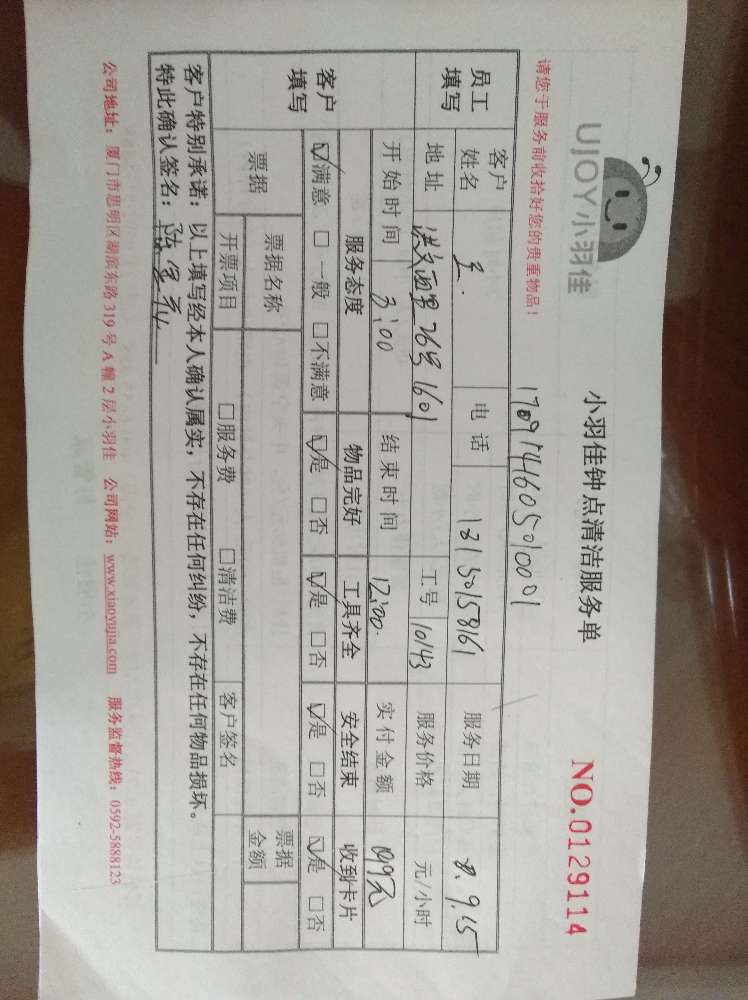 UJOY小羽佳
小羽佳钟点清洁服务单
NO.0129114
请您于服务前收拾好您的贵重物品！
170914605010001
员工填写 客户姓名 王 电话 18150158161 服务日期 8.9.15
地址 洪文西里26号1601 工号 10143 服务价格 元/小时
开始时间 3:00 结束时间 12:00 实付金额 109元
客户填写 服务态度 物品完好 工具齐全 安全结束 收到卡片
☑满意 □一般 □不满意 ☑是 □否 ☑是 □否 ☑是 □否 ☑是 □否
票据 票据名称 票据金额
开票项目 □服务费 □清洁费 客户签名
客户特别承诺：以上填写经本人确认属实，不存在任何纠纷，不存在任何物品损坏。
特此确认签名：
公司地址：厦门市思明区湖滨东路319号A幢2层小羽佳 公司网站：www.xiaoyujia.com 服务监督热线：0592-5888123